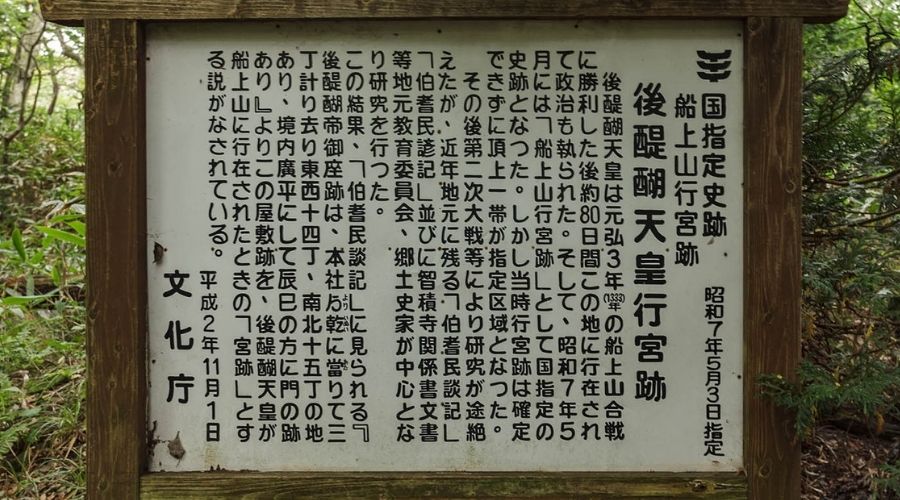 国指定史跡
船上山行宮跡
昭和7年5月3日指定
後醍醐天皇行宮跡
後醍醐天皇は元弘3年(1333年)の船上山合戦
に勝利した後約80日間この地に行在され
て政治も執られた。そして、昭和7年5
月には「船上山行宮跡」として国指定の
史跡となつた。しかし当時行宮跡は確定
できずに頂上一帯が指定区域となつた。
その後第二次大戦等により研究が途絶
えたが、近年地元に残る「伯耆民談記」
「伯耆民諺記」並びに智積寺関係書文書
等地元教育委員会、郷土史家が中心とな
り研究を行つた。
この結果、「伯耆民談記」に見られる『
後醍醐帝御座跡は、本社より乾に當りて三
丁計り去り東西十四丁、南北十五丁の地
あり、境内廣平にして辰巳の方に門の跡
あり』よりこの屋敷跡を、後醍醐天皇が
船上山に行在されたときの「宮跡」とす
る説がなされている。
平成2年11月1日
文化庁